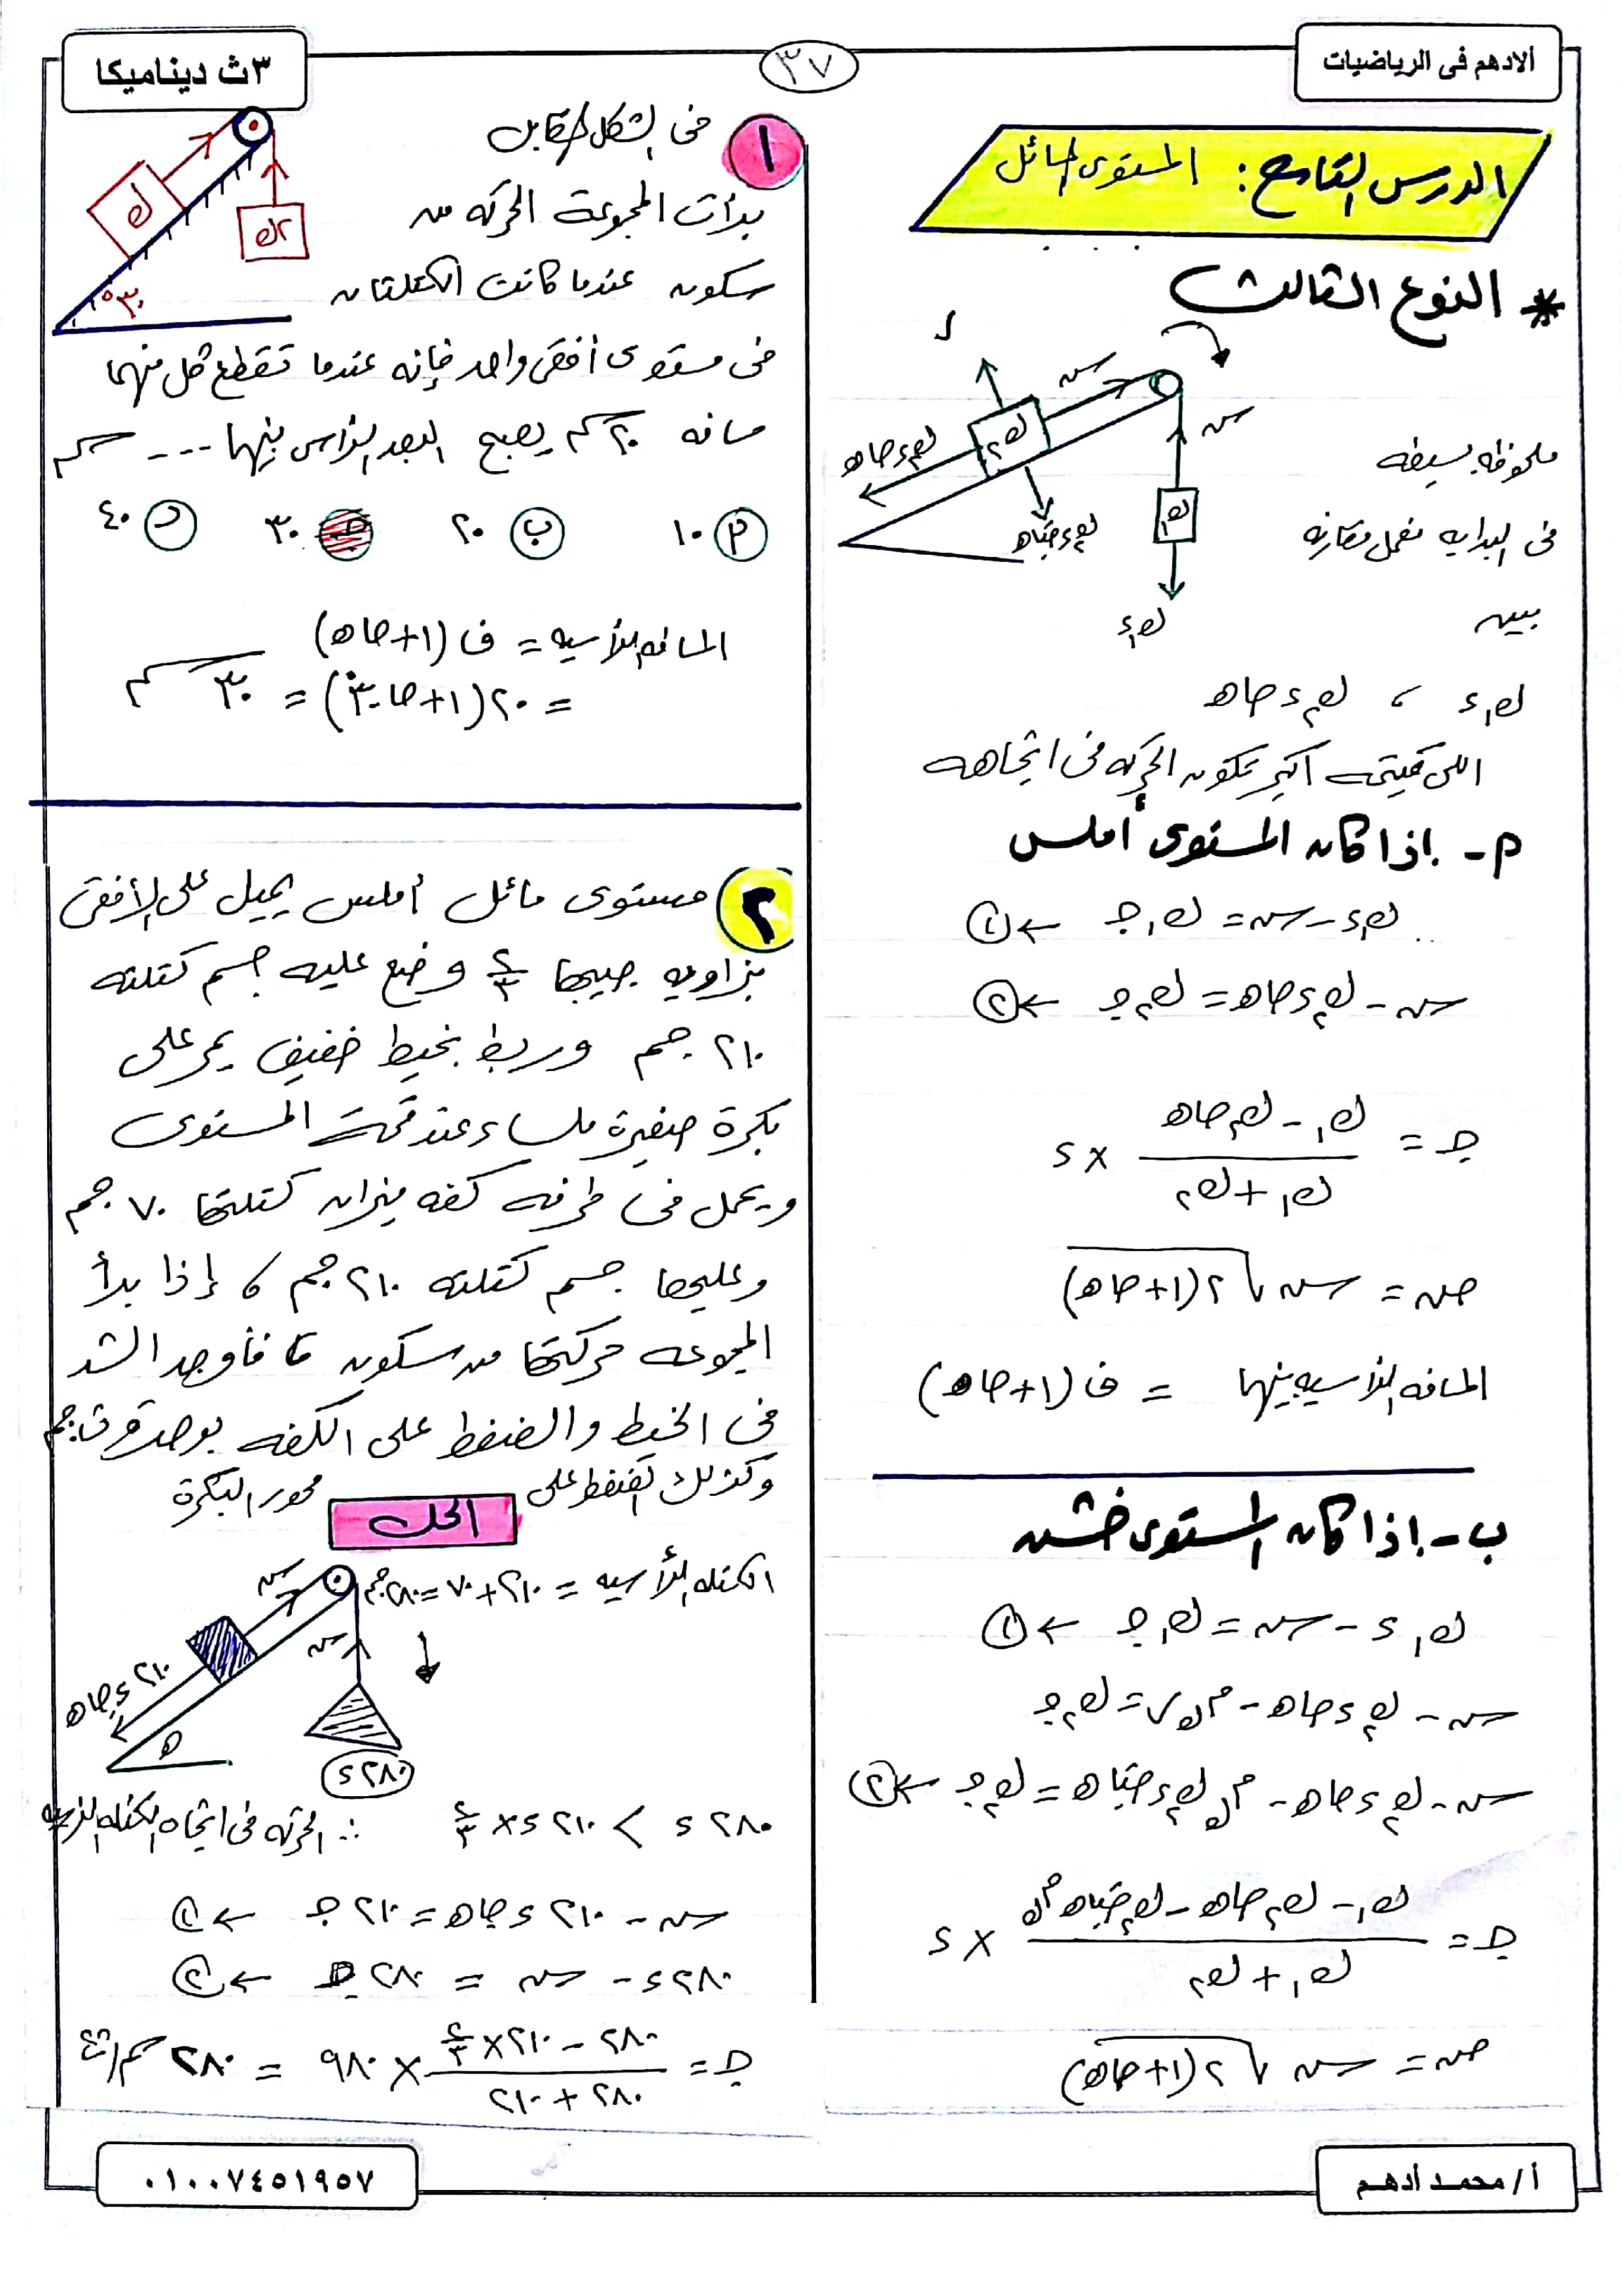 الادهم فى الرياضيات
٣٧
٣ث ديناميكا
الدرس التاسع : المستوى المائل
* النوع الثالث
ر
س
س
ك٢
ك٢ ء حاه
ك٢ ء حتاه
ك١
ك١ ء
ملحوظه بسيطه
فى البدايه نعمل مقارنه
بين
ك١ ء ، ك٢ ء حاه
اللى قيمته اكبر تكون الحركه فى اتجاهه
أ - إذا كان المستوى أملس
ك١ ء - س = ك١ جـ ← ①
س - ك٢ ء حاه = ك٢ جـ ← ②
جـ = (ك١ - ك٢ حاه) / (ك١ + ك٢) × ء
ض = س √٢(١+حاه)
المسافه الرأسيه بينهما = ف (١+حاه)
ب - إذا كان المستوى خشن
ك١ ء - س = ك١ جـ ← ①
س - ك٢ ء حاه - م ك ر = ك٢ جـ
س - ك٢ ء حاه - م ك ك٢ ء حتاه = ك٢ جـ ← ②
جـ = (ك١ - ك٢ حاه - ك٢ حتاه م ك) / (ك١ + ك٢) × ء
ض = س √٢(١+حاه)
١ فى الشكل المقابل
بدأت المجموعة الحركه من
سكون عندما كانت الكتلتان
فى مستوى أفقى واحد فإنه عندما تقطع كل منهما
مسافه ٢٠ سم يصبح البعد الرأسى بينهما --- سم
ك
٢ك
٣٠°
أ ١٠ ب ٢٠ جـ ٣٠ د ٤٠
المسافه الرأسيه = ف (١+حاه)
= ٢٠ (١+حا٣٠°) = ٣٠ سم
٢ مستوى مائل أملس يميل على الأفقى
بزاويه جيبها ٢/٣ وضع عليه جسم كتلته
٢١٠ جم وربط بخيط خفيف يمر على
بكرة صغيرة ملساء عند قمة المستوى
ويحمل فى طرفه كفه ميزان كتلتها ٧٠ جم
وعليها جسم كتلته ٢١٠ جم ، إذا بدأ
المجموعه حركتها من سكون ، فأوجد الشد
فى الخيط والضغط على الكفه بوحدة ث.جم
وكذلك الضغط على محور البكرة
الحل
الكتله الرأسيه = ٢١٠ + ٧٠ = ٢٨٠ جم
س
س
٢١٠ ء حاه
ه
٢٨٠ ء
٢٨٠ ء > ٢١٠ ء × ٢/٣ ∴ الحركه فى اتجاه الكتله الرأسيه
س - ٢١٠ ء حاه = ٢١٠ جـ ← ①
٢٨٠ ء - س = ٢٨٠ جـ ← ②
جـ = (٢٨٠ - ٢١٠ × ٢/٣) / (٢٨٠ + ٢١٠) × ٩٨٠ = ٢٨٠ سم/ث٢
أ / محمد أدهم
٠١٠٠٧٤٥١٩٥٧